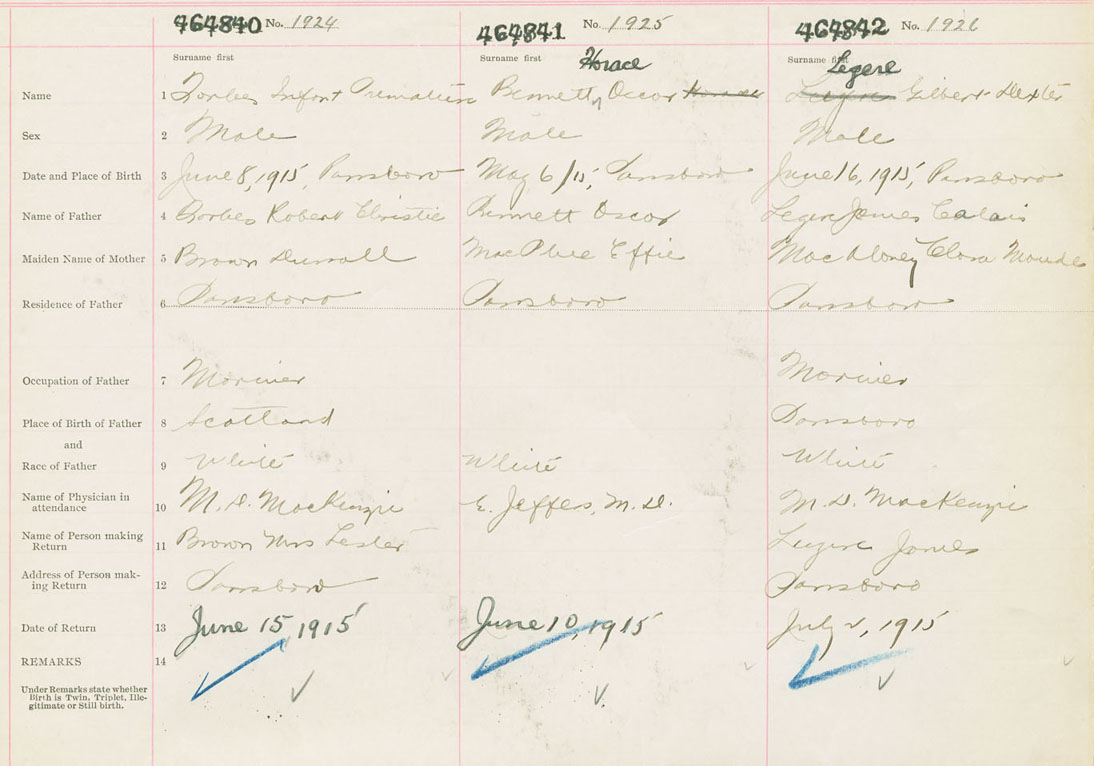 464840 No. 1924 464841 No. 1925 464842 No. 1926
Surname first Surname first Surname first
Horace Legere
Name 1 Forbes Infant Premature Bennett, Oscar Gilbert Dexter
Sex 2 Male Male Male
Date and Place of Birth 3 June 8, 1915, Parrsboro May 6/15, Parrsboro June 16, 1915, Parrsboro
Name of Father 4 Forbes Robert Christie Bennett Oscar Legere James Calais
Maiden Name of Mother 5 Brown MacPhee Effie MacAloney Clara Maude
Residence of Father 6 Parrsboro Parrsboro Parrsboro
Occupation of Father 7 Mariner Mariner
Place of Birth of Father 8 Scotland Parrsboro
and
Race of Father 9 White White White
Name of Physician in
attendance 10 M. D. MacKenzie E. Jeffers, M.D. M. D. MacKenzie
Name of Person making
Return 11 Brown Mrs Lester Legere James
Address of Person mak-
ing Return 12 Parrsboro Parrsboro
Date of Return 13 June 15, 1915 June 10, 1915 July 2, 1915
REMARKS 14
Under Remarks state whether
Birth is Twin, Triplet, Ille-
gitimate or Still birth.